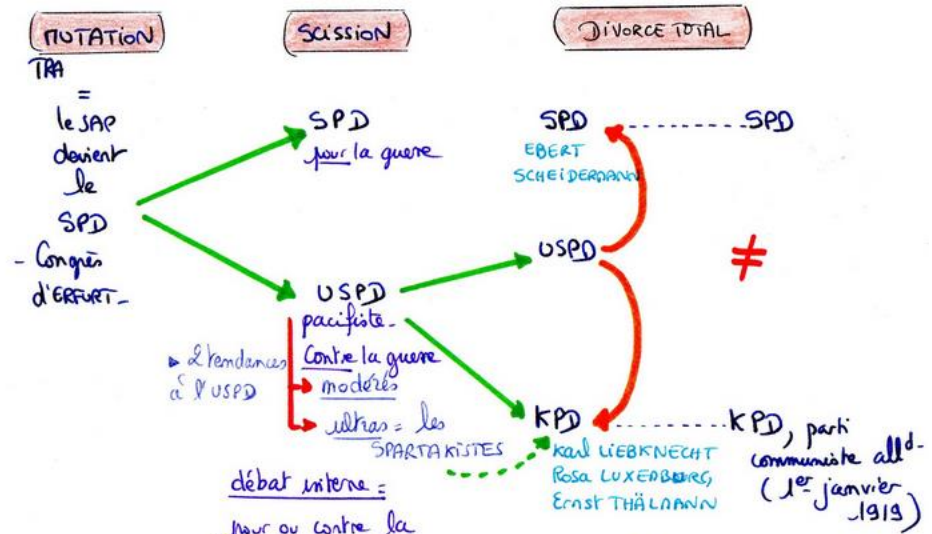 MUTATION
TRA
=
le SAP
devient
le
SPD
- Congrès
d'ERFURT-
SCISSION
SPD
pour la guerre
USPD
pacifiste-
Contre la guerre
▸ 2 tendances
à l'USPD
modérés
ultras = les
SPARTAKISTES
débat interne =
pour ou contre la
DIVORCE TOTAL
SPD
EBERT
SCHEIDEMANN
USPD
KPD
Karl LIEBKNECHT
Rosa LUXEMBURG,
Ernst THÄLMANN
SPD
≠
KPD, parti
communiste alld-
(1er janvier
1919)